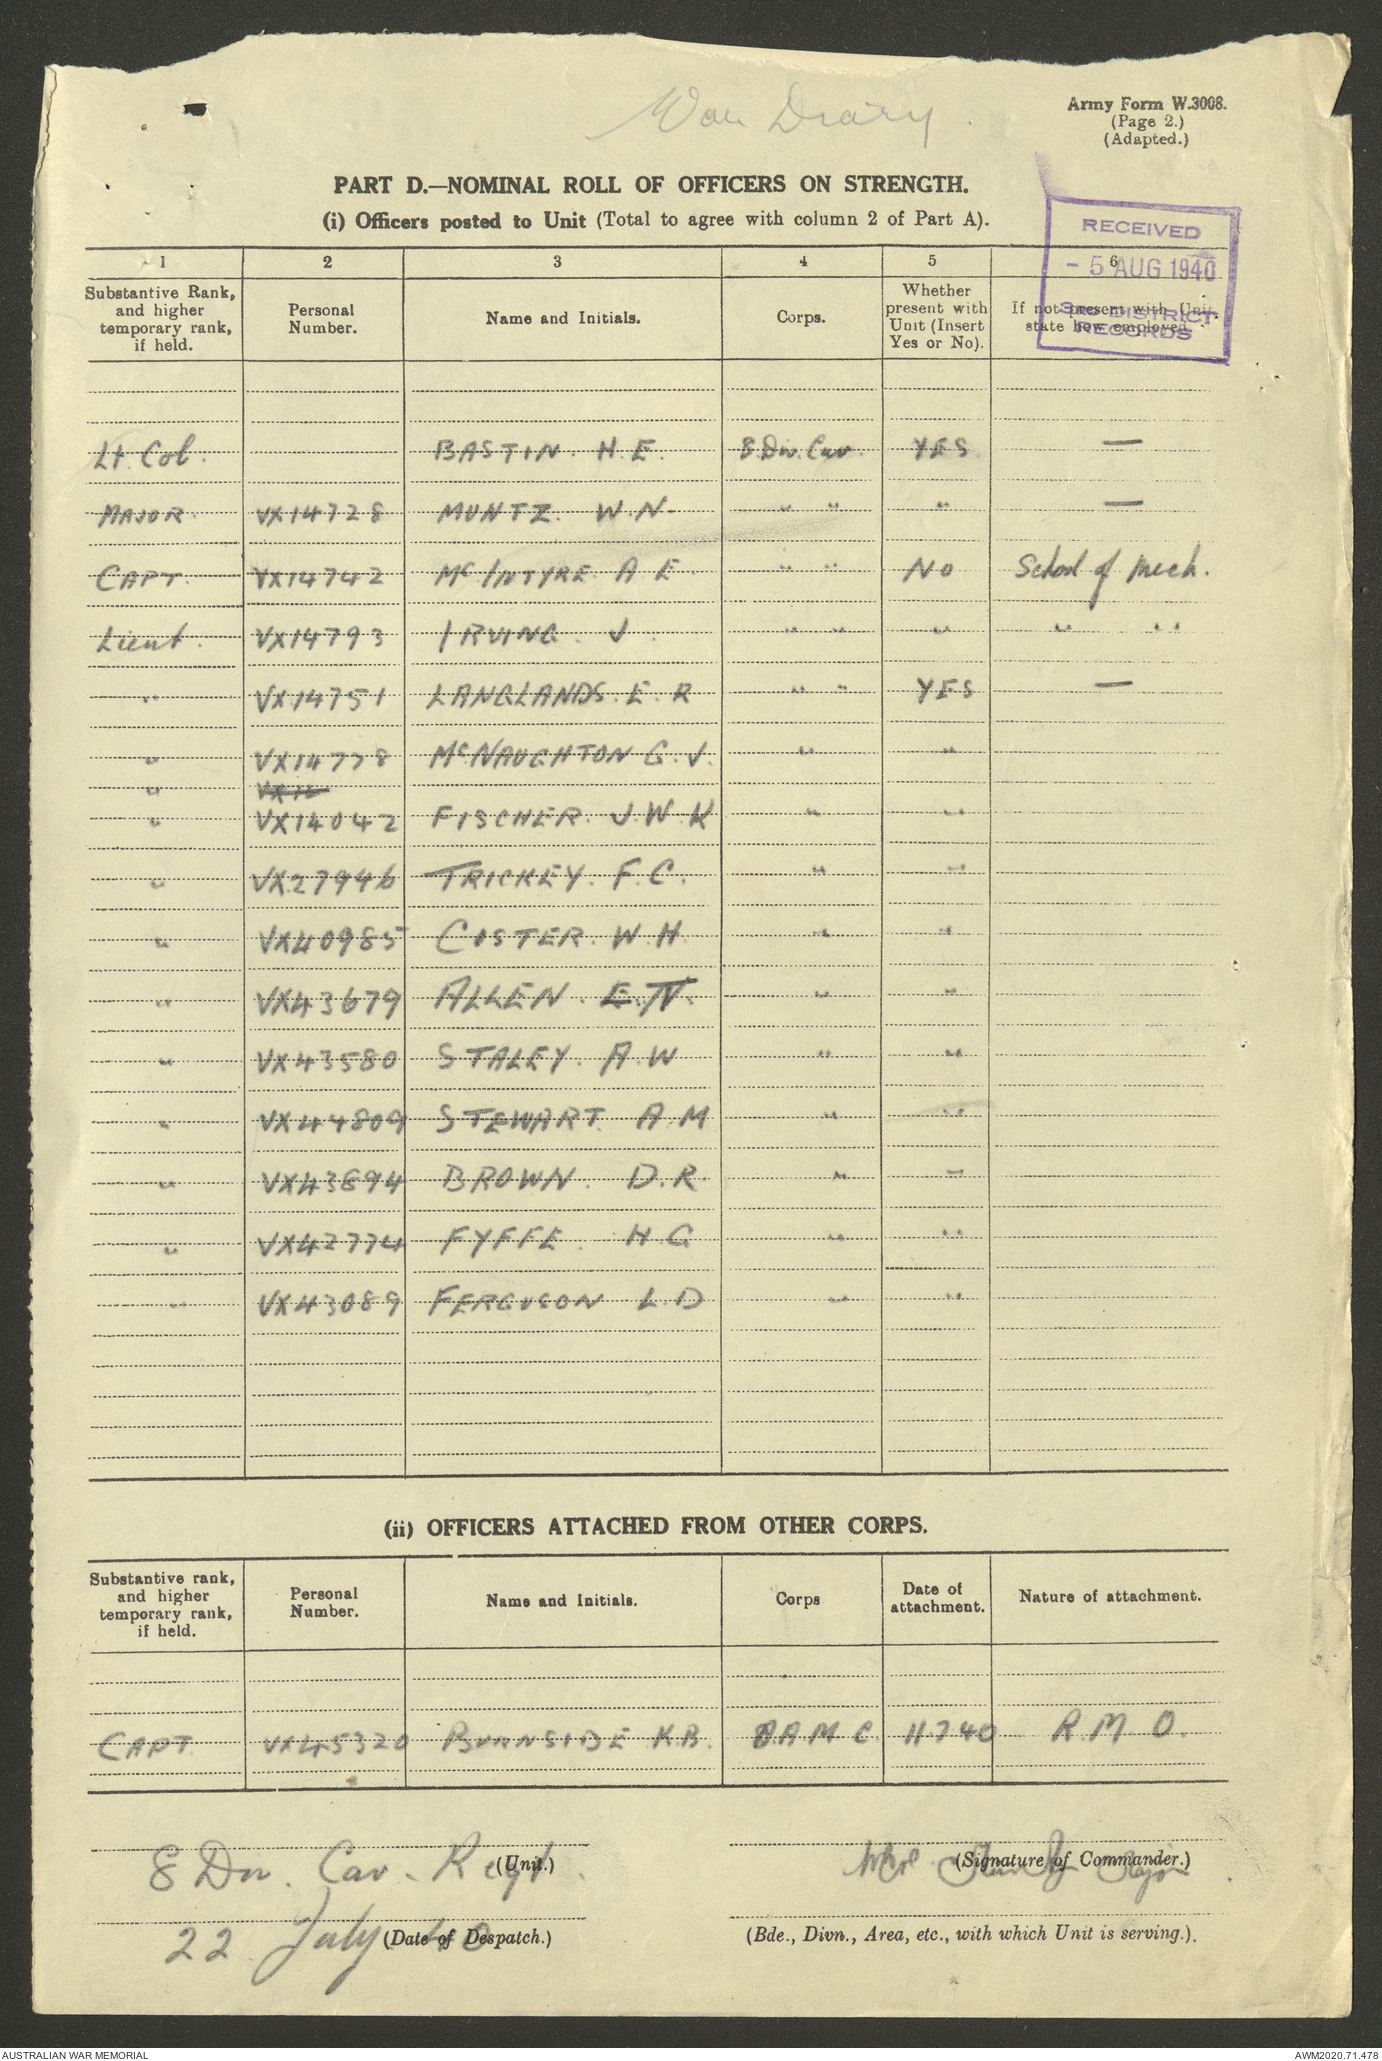 War Diary.
Army Form W.3008.
(Page 2.)
(Adapted.)
PART D.—NOMINAL ROLL OF OFFICERS ON STRENGTH.
(i) Officers posted to Unit (Total to agree with column 2 of Part A).
RECEIVED
- 5 AUG 1940
3RD DISTRICT
RECORDS
1 2 3 4 5 6
Substantive Rank, and higher temporary rank, if held. Personal Number. Name and Initials. Corps. Whether present with Unit (Insert Yes or No). If not present with Unit, state how employed.
Lt. Col. BASTIN. H. E. 8 Div. Cav. YES —
MAJOR. VX14728 MUNTZ. W. N. " " " —
CAPT. VX14742 McINTYRE. A E. " " NO School of Mech.
Lieut. VX14793 IRVING. J. " " " " "
" VX14751 LANGLANDS. E. R " " YES —
" VX14778 McNAUGHTON G. J. " "
" VX14
" VX14042 FISCHER. J. W. K " "
" VX27946 TRICKEY. F. C. " "
" VX40985 COSTER. W. H. " "
" VX43679 ALLEN. E. N. " "
" VX43580 STALEY. A. W " "
" VX44809 STEWART. A. M " "
" VX43894 BROWN. D. R. " "
" VX42774 FYFFE. H G " "
" VX43089 FERGUSON L. D " "
(ii) OFFICERS ATTACHED FROM OTHER CORPS.
Substantive rank, and higher temporary rank, if held. Personal Number. Name and Initials. Corps Date of attachment. Nature of attachment.
CAPT. VX45320 BURNSIDE K. B. A. A. M C. 11 7 40 R. M. O.
8 Div. Cav. Regt. (Unit.)
(Signature of Commander.) Major
22 July 40 (Date of Despatch.)
(Bde., Divn., Area, etc., with which Unit is serving.).
AUSTRALIAN WAR MEMORIAL AWM2020.71.478